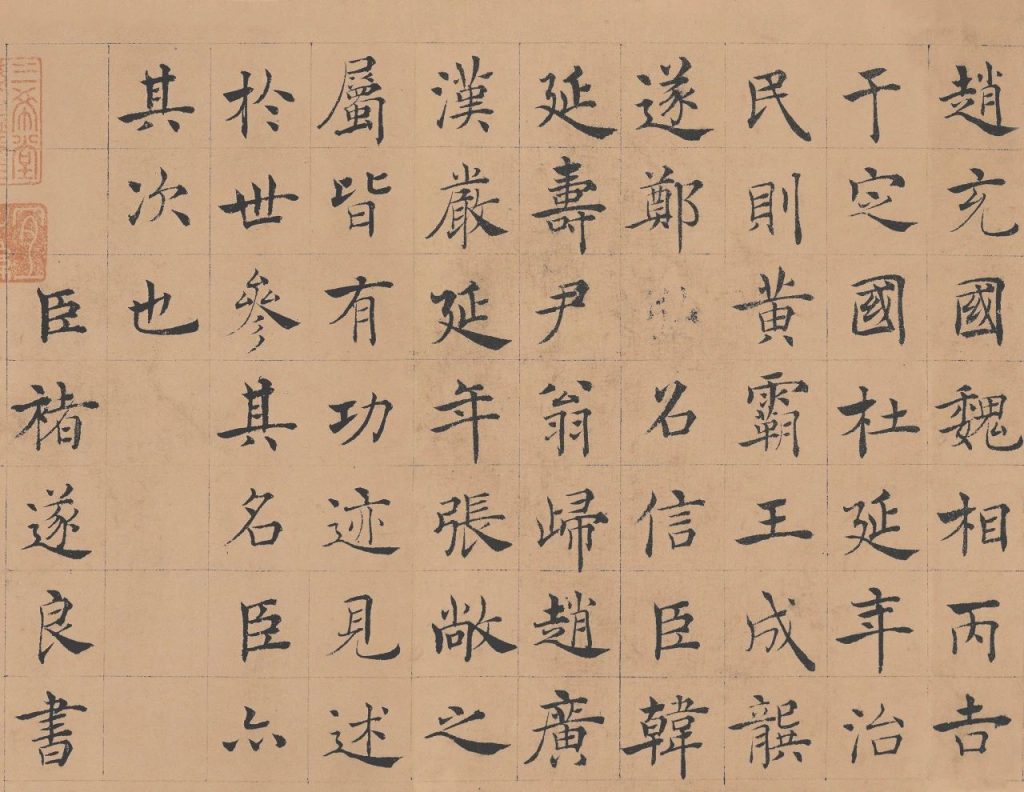 趙充國魏相丙吉
于定國杜延年治
民則黃霸王成龔
遂鄭召信臣韓
延壽尹翁歸趙廣
漢嚴延年張敞之
屬皆有功迹見述
於世參其名臣亦
其次也
臣褚遂良書
三希堂